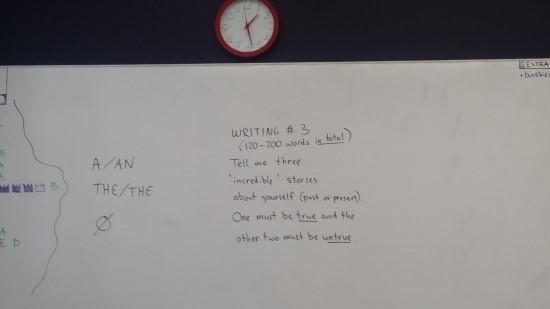 EXTRA
A/AN
THE/THE
Ø
WRITING # 3
(120-200 words in total)
Tell me three
"incredible" stories
about yourself (past or present).
One must be true and the
other two must be untrue.
B
A
A
B
A
E D